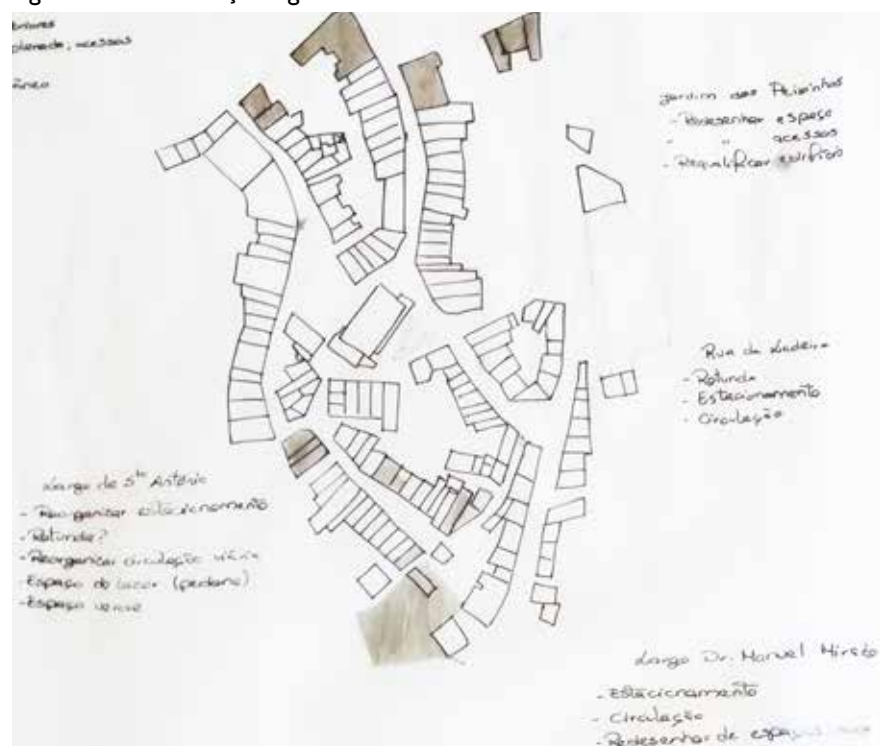 esplanada; acessos
Jardim das
- Redesenhar espaço
- " acessos
- Requalificar edifício
Rua da Ladeira
- Rotunda
- Estacionamento
- Circulação
Largo de Sto António
- Reorganizar estacionamento
- Rotunda?
- Reorganizar circulação viária
- Espaço de lazer (pedonal)
- Espaço verde
Largo Dr. Manuel
- Estacionamento
- Circulação
- Redesenhar de espaços